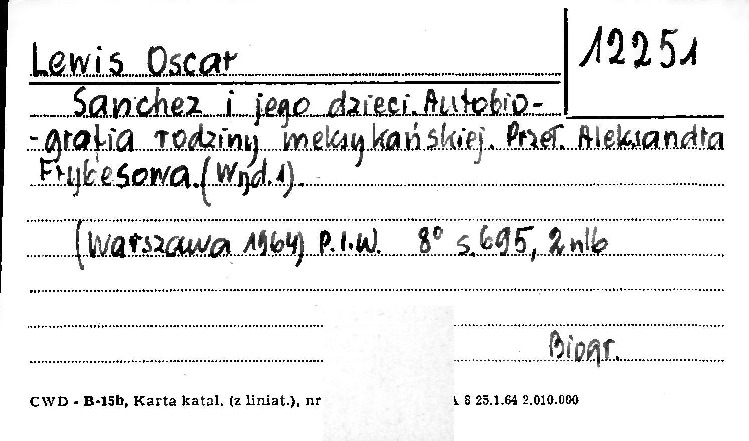 Lewis Oscar
12251
Sanchez i jego dzieci. Autobio-
-grafia rodziny meksykańskiej. Przeł. Aleksandra
Frybesowa. (Wyd. 1).
(Warszawa 1964) P.I.W. 8° s. 695, 2 nlb
Biogr.
CWD - B-15b, Karta katal. (z liniat.), nr A 8 25.1.64 2.010.000